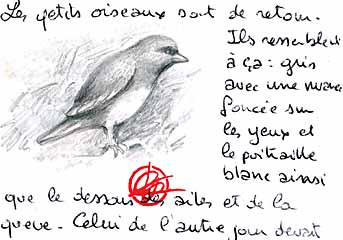 Les petits oiseaux sont de retour.
Ils ressemblent
à ça : gris
avec une nuance
foncée sur
les yeux et
le poitraille
blanc ainsi
que le dessous des ailes et de la
queue. Celui de l'autre jour devait